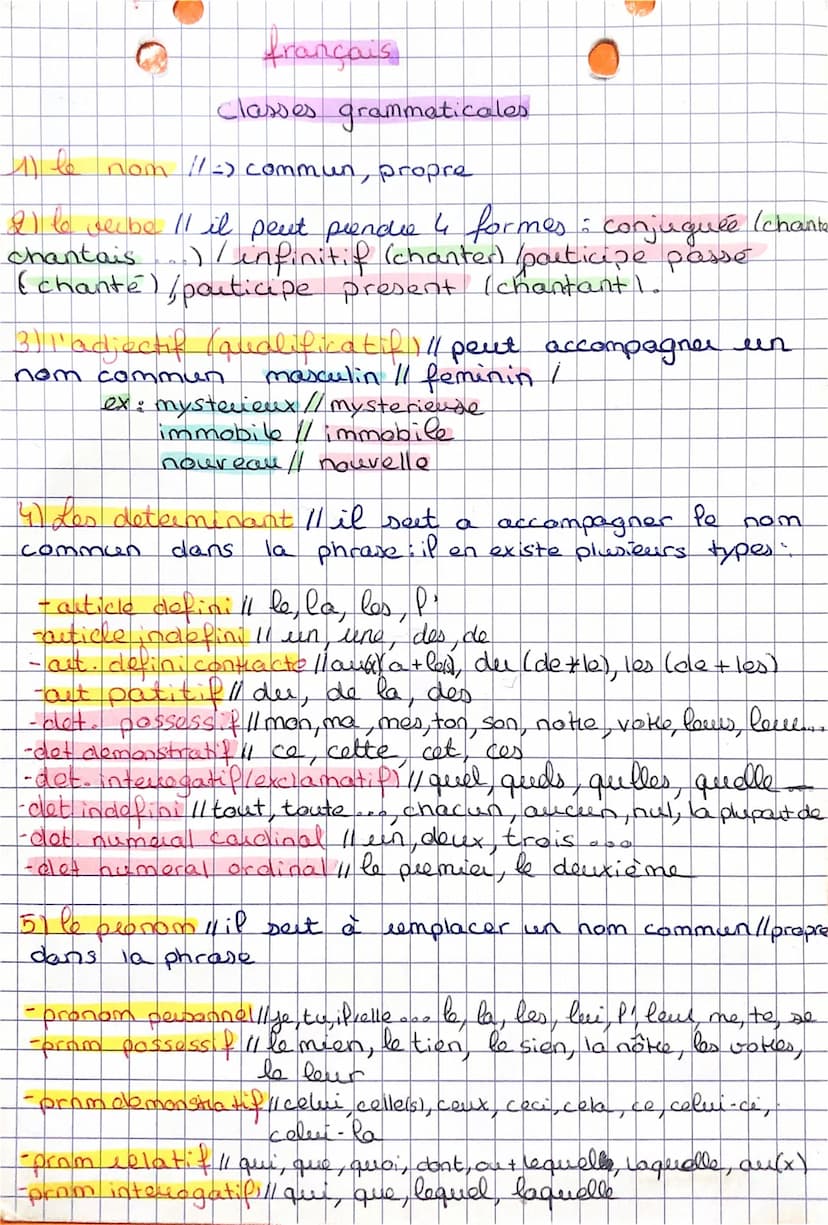 français
Classes grammaticales
1) le nom // => commun, propre
2) le verbe // il peut prendre 4 formes : conjuguée (chante
chantais ...) / infinitif (chanter) /participe passé
(chanté) /participe present (chantant).
3) l'adjectif (qualificatif) // peut accompagner un
nom commun masculin // feminin /
ex : mysterieux // mysterieuse
immobile // immobile
nouveau // nouvelle
4) Les determinant // il sert a accompagner le nom
commun dans la phrase : il en existe plusieurs types :
- article defini // le, la, les, l'
- article indefini // un, une, des, de
- art. defini contracte // au(x) (a + le(s)), du (de + le), les (de + les)
- art patitif // du, de la, des
- det. possessif // mon, ma, mes, ton, son, notre, votre, leurs, leur...
- det demonstratif // ce, cette, cet, ces
- det. interrogatif (exclamatif) // quel, quels, qulles, quelle
- det indefini // tout, toute ..., chacun, aucun, nul, la plupart de
- det. numeral cardinal // un, deux, trois ...
- det numeral ordinal // le premier, le deuxième
5) le pronom // il sert à remplacer un nom commun // propre
dans la phrase
- pronom personnel // je, tu, il, elle ... le, la, les, lui, l', leur, me, te, se
- prnm possessif // le mien, le tien, le sien, la nôtre, les votres,
le leur
- prnm demonstratif // celui, celle(s), ceux, ceci, cela, ce, celui-ci,
celui-la
- prnm relatif // qui, que, quoi, dont, ou + lequel, laquelle, au(x)
- prnm interrogatif // qui, que, lequel, laquelle